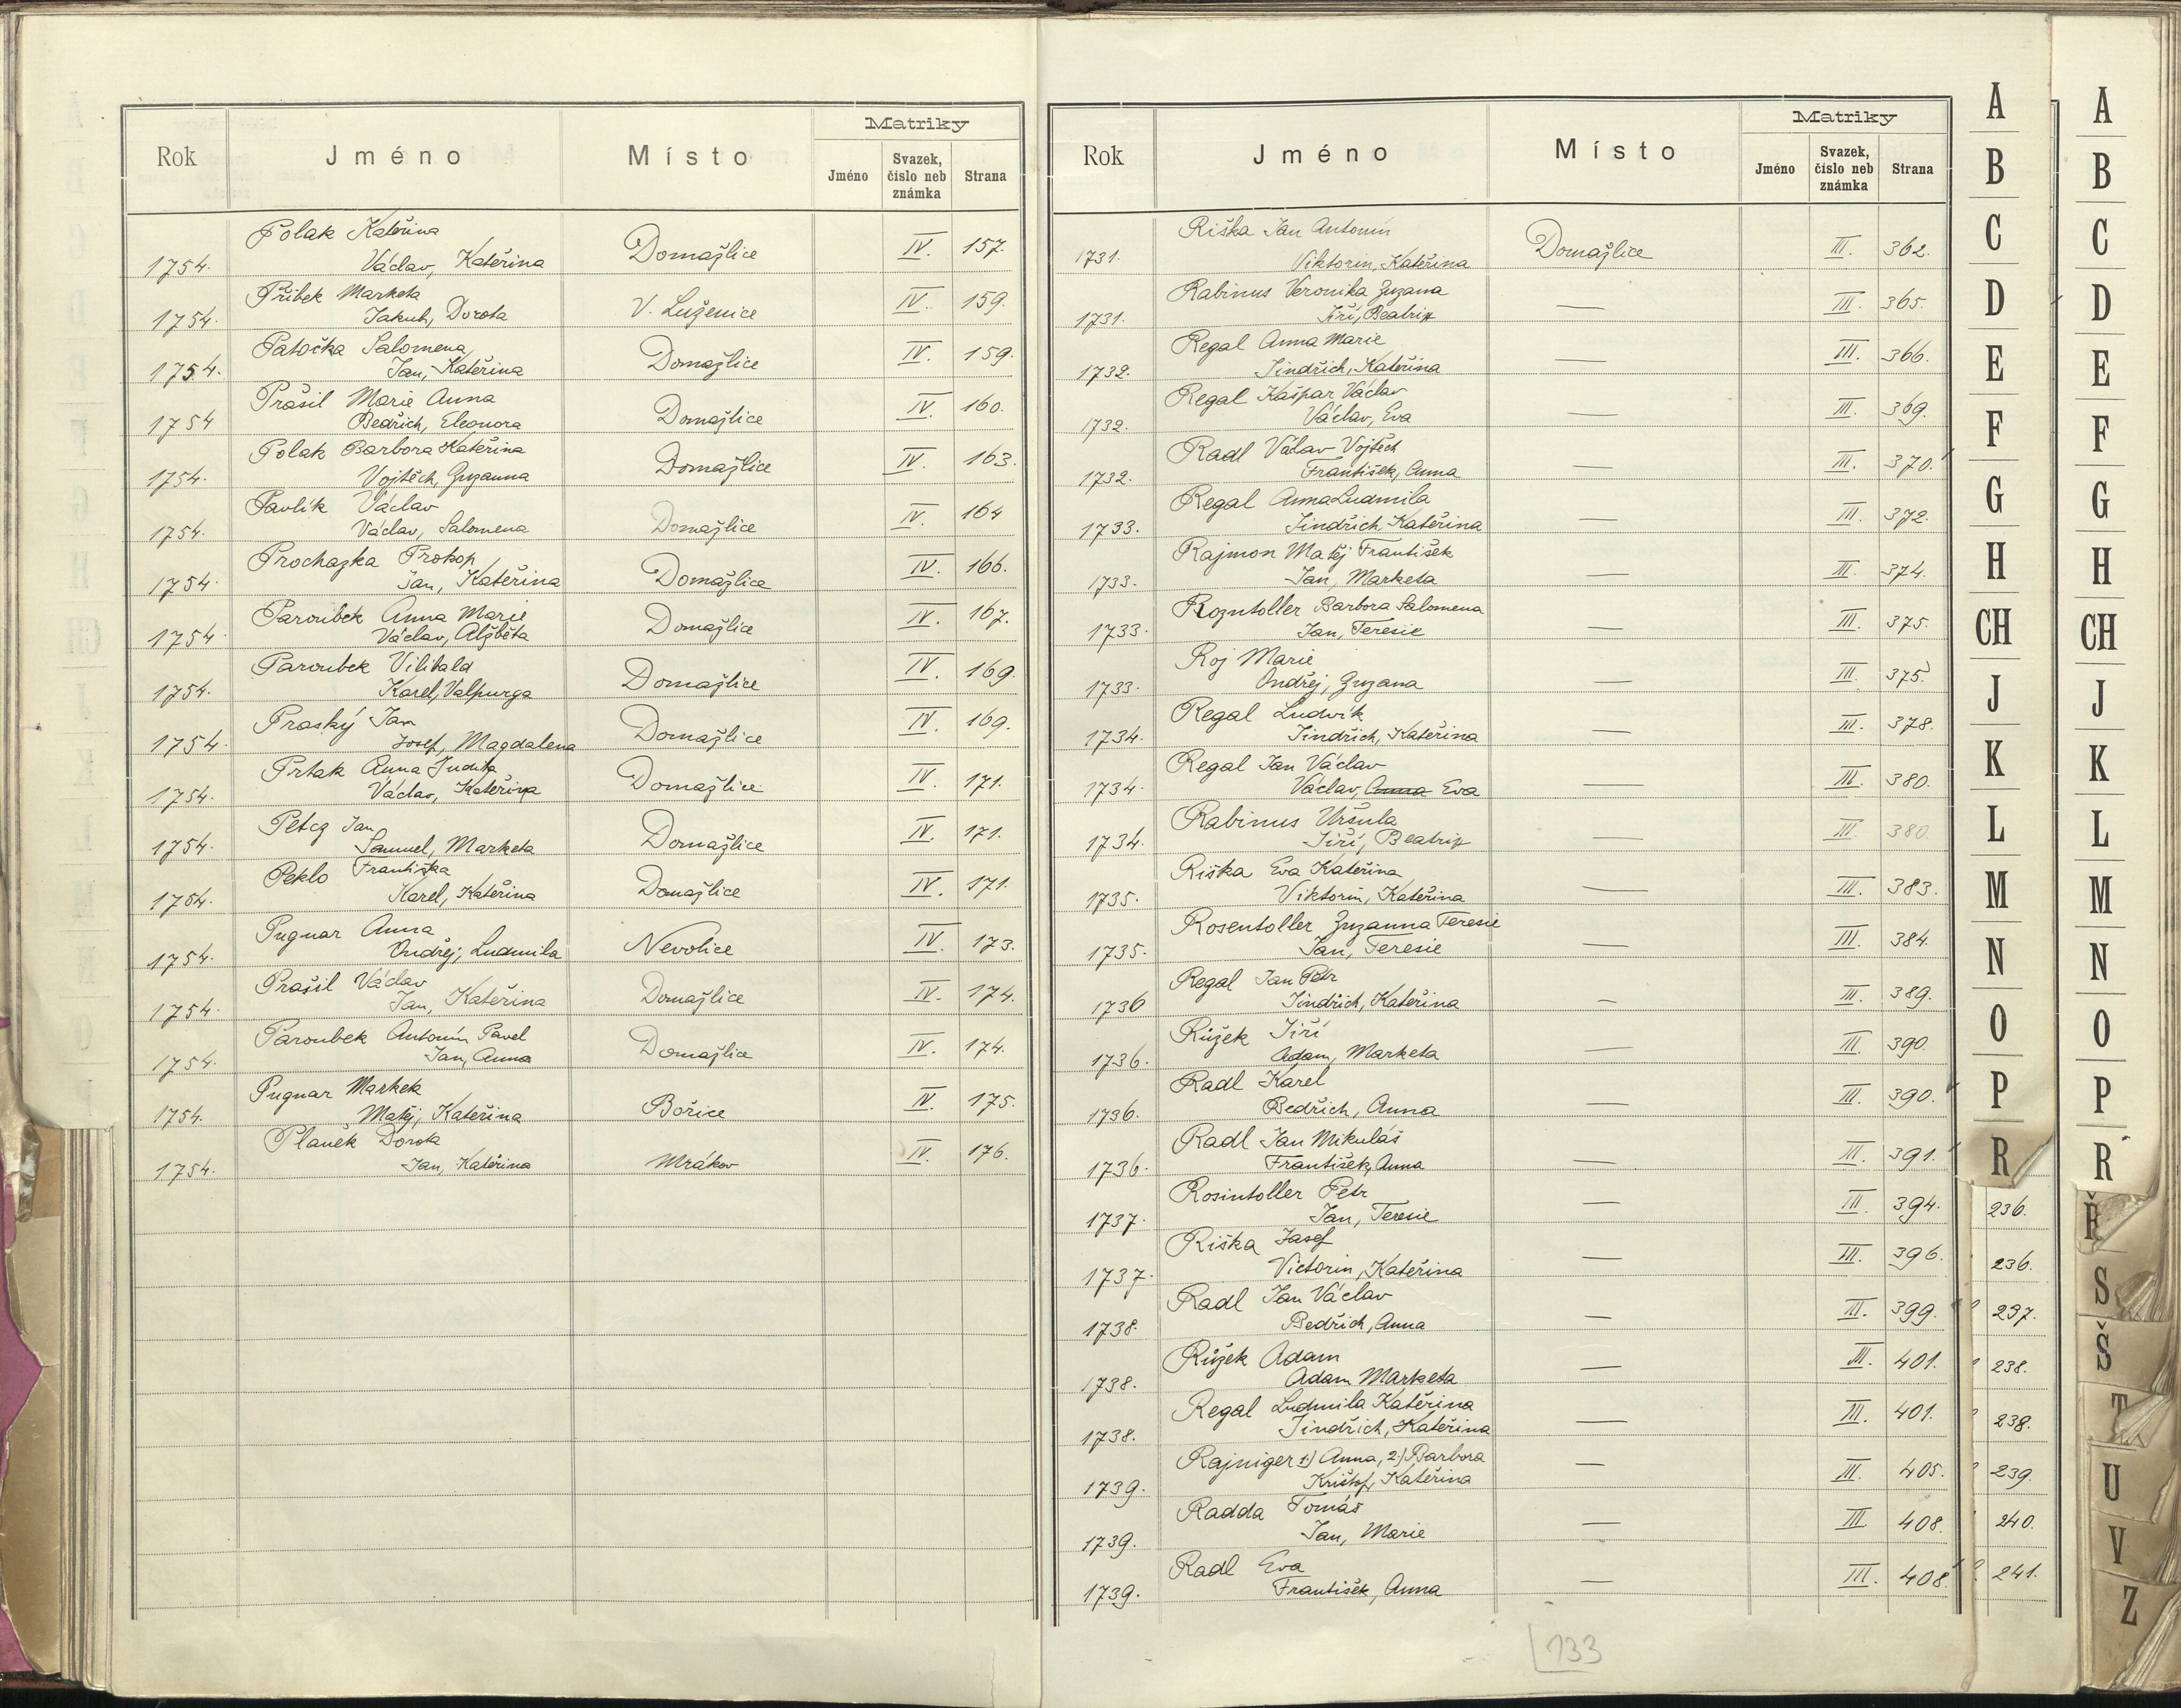 Matriky
Rok Jméno Místo Jméno Svazek, číslo neb známka Strana
Polak Kateřina
1754. Václav, Kateřina Domažlice IV. 157.
Přibek Marketa
1754. Jakub, Dorota V. Luženice IV. 159.
Patočka Salomena
1754. Jan, Kateřina Domažlice IV. 159.
Prašil Marie Anna
1754 Bedřich, Eleonora Domažlice IV. 160.
Polak Barbora Kateřina
1754. Vojtěch, Zuzanna Domažlice IV. 163.
Pavlík Václav
1754. Václav, Salomena Domažlice IV. 164
Prochazka Prokop
1754. Jan, Kateřina Domažlice IV. 166.
Paroubek Anna Marie
1754. Václav, Alžběta Domažlice IV. 167.
Paroubek Vilibald
1754. Karel, Valpurga Domažlice IV. 169.
Praský Jan
1754. Josef, Magdalena Domažlice IV. 169.
Prtak Anna Judita
1754. Václav, Kateřina Domažlice IV. 171.
Petcz Jan
1754. Samuel, Marketa Domažlice IV. 171.
Peklo Františka
1754. Karel, Kateřina Domažlice IV. 171.
Pugnar Anna
1754. Ondřej, Ludmila Nevolice IV. 173.
Prašil Václav
1754. Jan, Kateřina Domažlice IV. 174.
Paroubek Antonín Pavel
1754. Jan, Anna Domažlice IV. 174.
Pugnar Marketa
1754. Matěj, Kateřina Bořice IV. 175.
Planěk Dorota
1754. Jan, Kateřina Mrákov IV. 176.
Matriky
Rok Jméno Místo Jméno Svazek, číslo neb známka Strana
Riška Jan Antonín
1731. Viktorin, Kateřina Domažlice III. 362.
Rabinus Veronika Zuzana
1731. Jiří, Beatrix — III. 365.
Regal Anna Marie
1732. Jindřich, Kateřina — III. 366.
Regal Kašpar Václav
1732. Václav, Eva — III. 369.
Radl Válav Vojtěch
1732. František, Anna — III. 370.
Regal Anna Ludmila
1733. Jindřich, Kateřina — III. 372.
Rajmon Matěj František
1733. Jan, Marketa — III. 374.
Rozntoller Barbora Salomena
1733. Jan, Teresie — III. 375.
Roj Marie
1733. Ondřej, Zuzana — III. 375.
Regal Ludvík
1734. Jindřich, Kateřina — III. 378.
Regal Jan Václav
1734. Václav, Anna Eva — III. 380.
Rabinus Uršula
1734. Jiří, Beatrix — III. 380.
Riška Eva Kateřina
1735. Viktorin, Kateřina — III. 383.
Rosentoller Zuzanna Teresie
1735. Jan, Teresie — III. 384.
Regal Jan Petr
1736 Jindřich, Kateřina — III. 389.
Růžek Jiří
1736. Adam, Marketa — III. 390.
Radl Karel
1736. Bedřich, Anna — III. 390.
Radl Jan Mikuláš
1736. František, Anna — III. 391.
Rosintoller Petr
1737. Jan, Teresie — III. 394. 236.
Riška Josef
1737. Victorin, Kateřina — III. 396. 236.
Radl Jan Václav
1738. Bedřich, Anna — III. 399. 237.
Růžek Adam
1738. Adam Marketa — III. 401. 238.
Regal Ludmila Kateřina
1738. Jindřich, Kateřina — III. 401. 238.
Rajniger 1) Anna, 2) Barbora
1739. Krištof, Kateřina — III. 405. 239.
Radda Tomáš
1739. Jan, Marie — III 408. 240.
Radl Eva
1739. František, Anna — III. 408. 241.
133
A
B
C
D
E
F
G
H
CH
J
K
L
M
N
O
P
R
A
B
C
D
E
F
G
H
CH
J
K
L
M
N
O
P
R
Ř
S
Š
T
U
V
Z